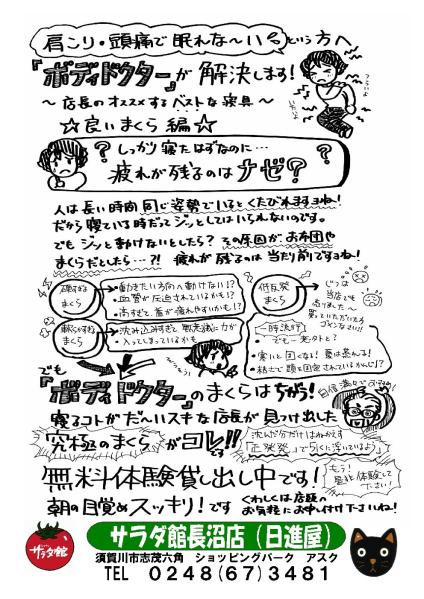 肩こり・頭痛で眠れな〜い という方へ
『ボディドクター』が解決します！
〜店長のオススメするベストな寝具〜
☆良いまくら編☆
しっかり寝たはずなのに…
疲れが残るのはナゼ？
人は長い時間同じ姿勢でいるとくたびれますよね！
だから寝ている時だってジッとしてはいられないのです。
でもジッと動けないとしたら？その原因が、お布団や
まくらだとしたら…?! 疲れが残るのは当たり前ですよね！
硬すぎる
まくら
・動きたい方向へ動けない!?
・血管が圧迫されているかも!?
・高すぎて、首が疲れやすいかも!?
軟らかすぎる
まくら
・沈み込みすぎて無意識に力が
入ってしまっているかも
低反発
まくら
じつは
当店でも
売りました〜
買っていただいた方
ゴメンなさい!!
一時流行
でも…老外とて？
・寒いと固くなる！夏は蒸れる！
でも
『ボディドクター』のまくらはちがう！
自信満々でおすすめ！
寝るコトがだ〜いスキな店長が見つけ出した
究極のまくらがコレ!!です
沈んだ分だけはねかえす
「正発発」で「らくに浮いているよう」
無料体験貸し出し中です！
もう！
是非体験して
下さい！
朝の目覚めスッキリ！です
くわしくは店頭の
お気軽にお申し付け下さいね！
サラダ館
サラダ館長沼店（日進屋）
須賀川市志茂六角 ショッピングパーク アスク
TEL 0248(67)3481